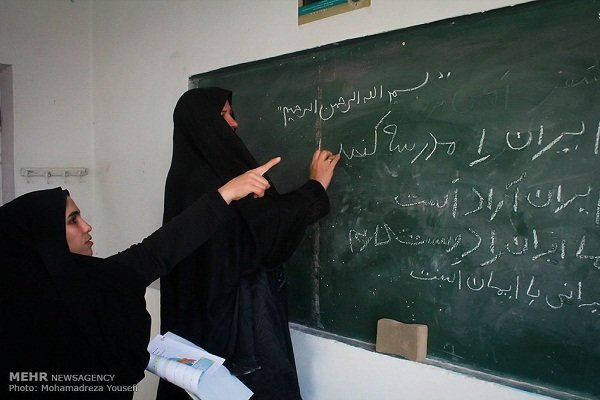 "بسم الله الرحمن الرحیم"
ایران را مدرسه کنید
ایران آزاد است
ما ایران را دوست داریم
یرانی با ایمان است
MEHR NEWSAGENCY
Photo: Mohamadreza Yousefi